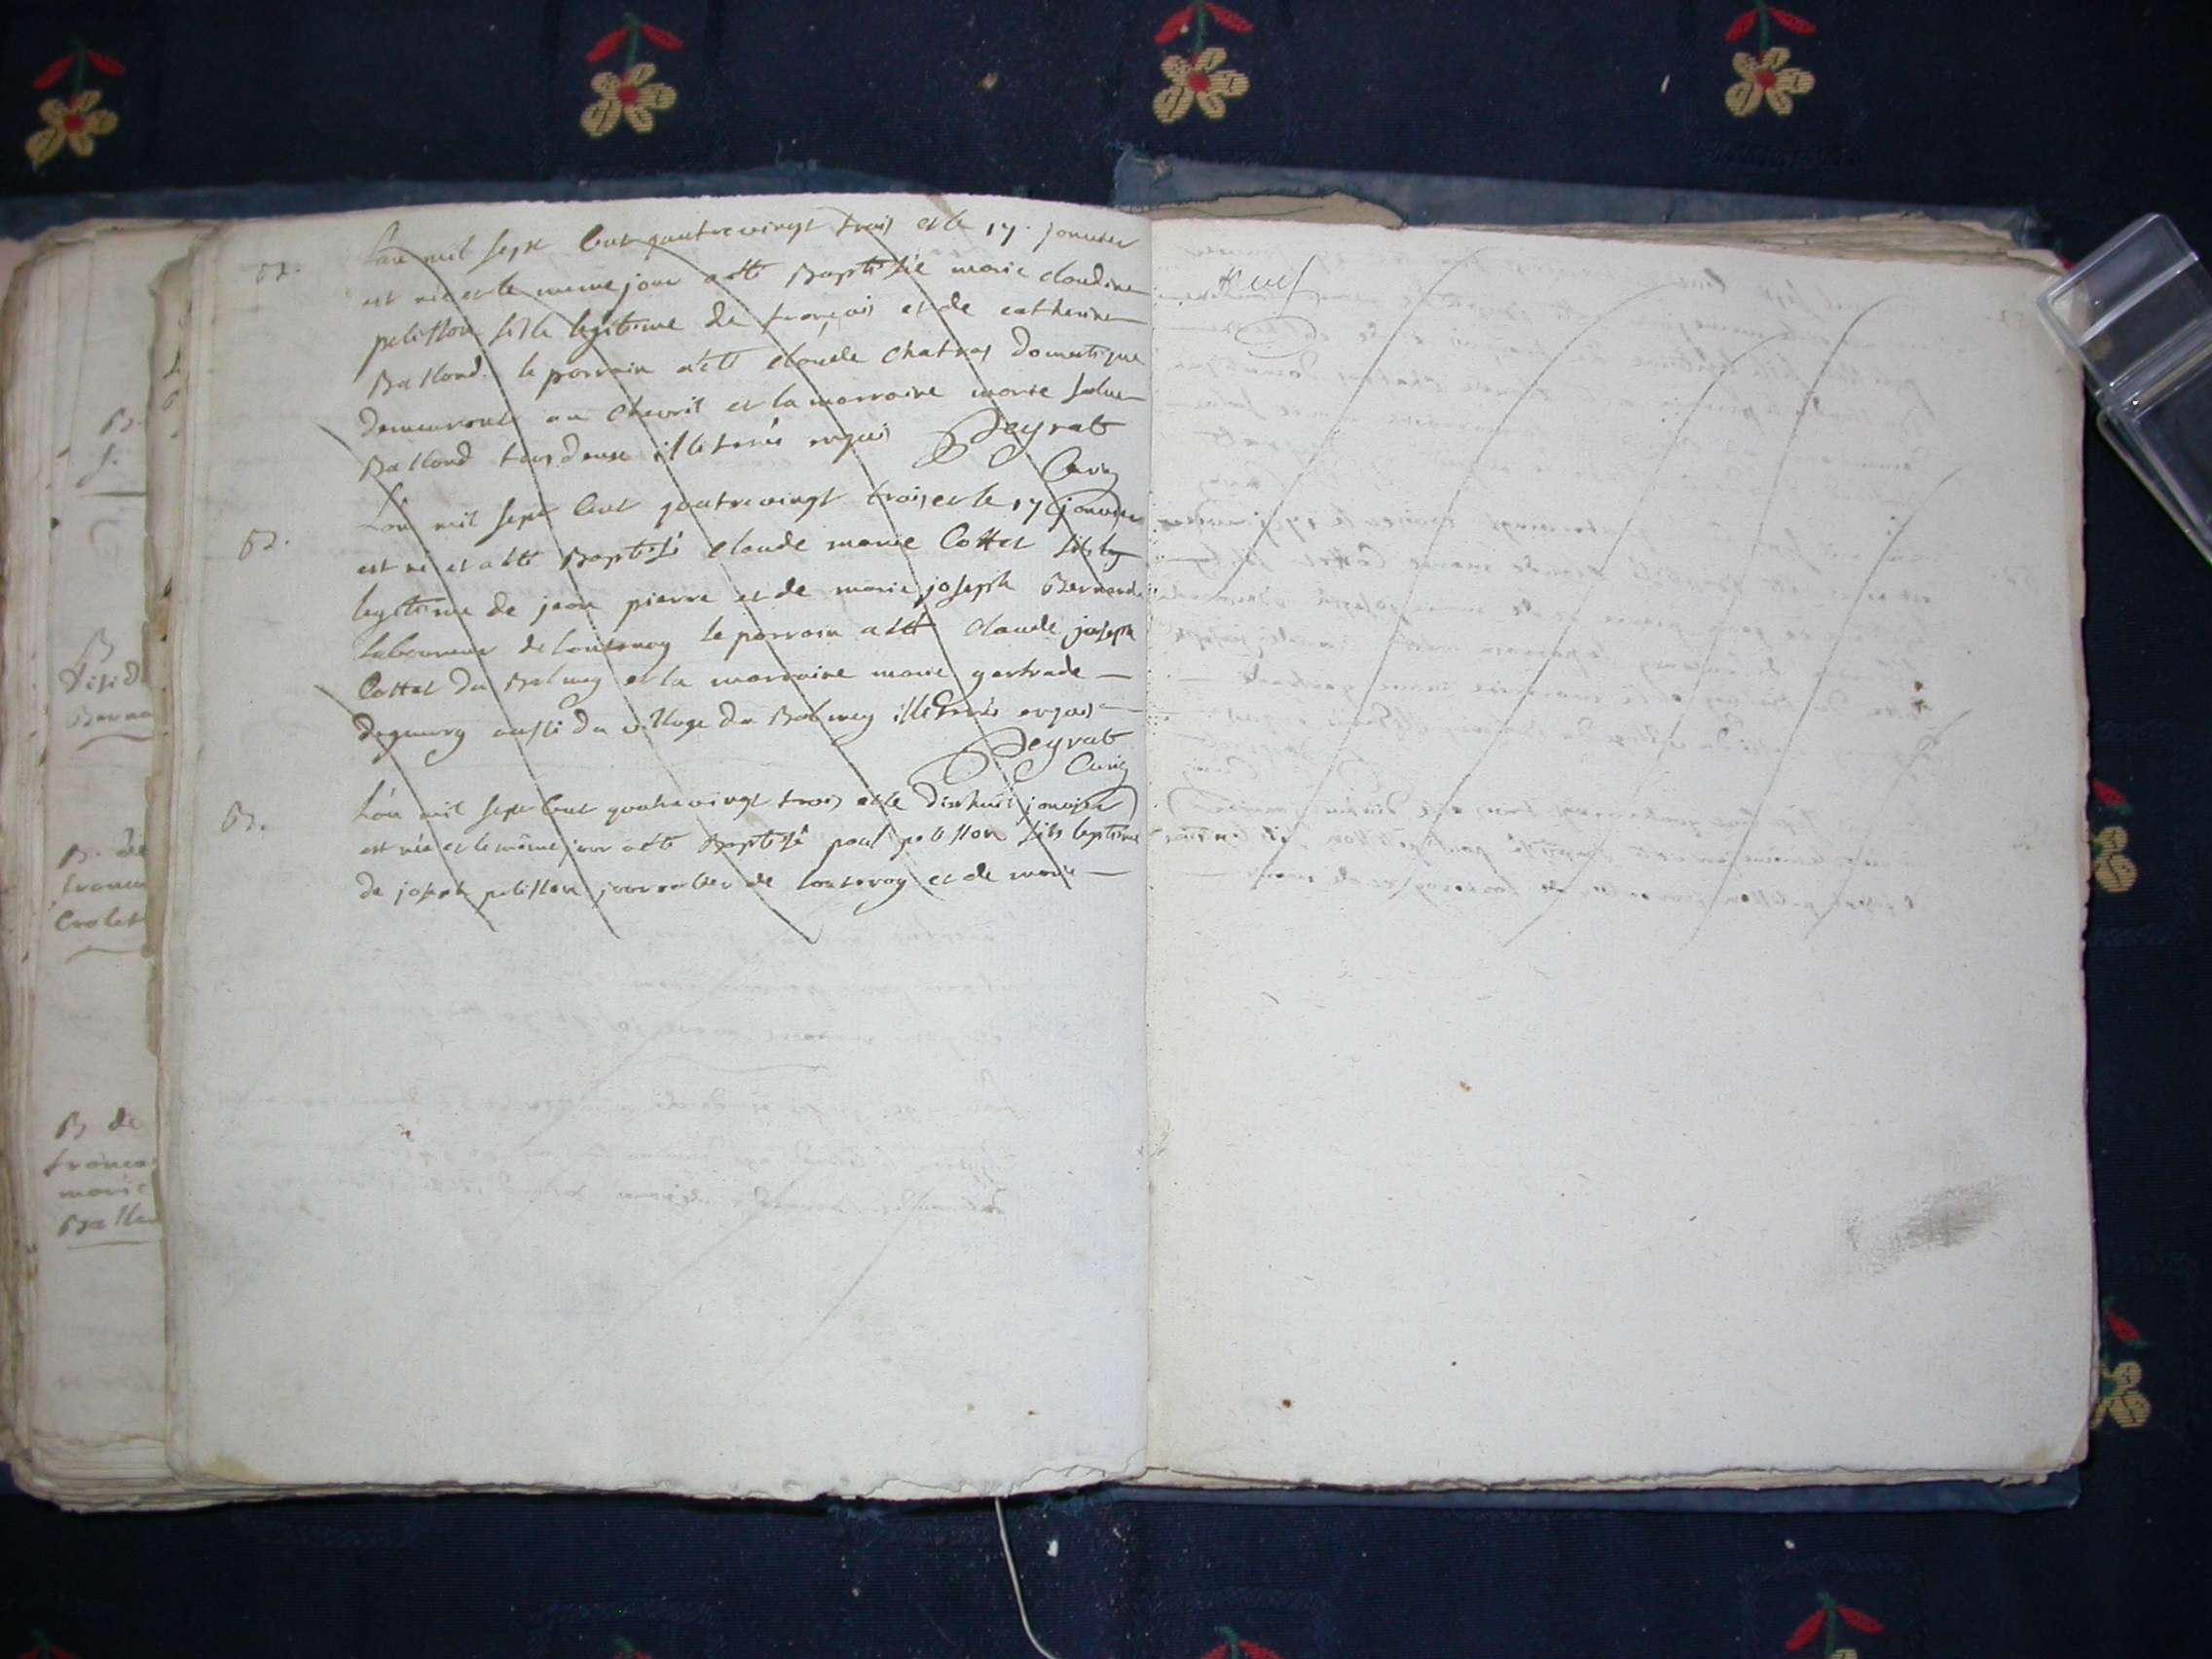 B.
f.
B
Desid
Berna
B. de
francoi
Crolet
B de
francoi
marie
Balla
B.
L'an mil sept Cent quatrevingt trois et le 17. janvier
est née et le meme jour a eté Baptisée marie claudine
pelisson fille legitime de françois et de catherine
Balland. le parrain a eté claude chatras Domestique
demeurant au chevril et la marraine marie
Balland tous deux illiterés enquis Deyrat
Curé
B.
L'an mil sept Cent quatrevingt trois et le 17 janvier
est né et a eté Baptisé claude marie Cottet fils
legitime de jean pierre et de marie joseph Bernard
laboureur de le parrain a eté claude joseph
Cottet du Balmey et la marraine marie gertrude
aussi du village du Balmey illiterés enquis
Deyrat
Curé
B.
L'an mil sept Cent quatrevingt trois et le dixhuit janvier
est née et le même jour a eté Baptisé paul pelisson fils legitime
de joseph pelisson journalier de et de marie